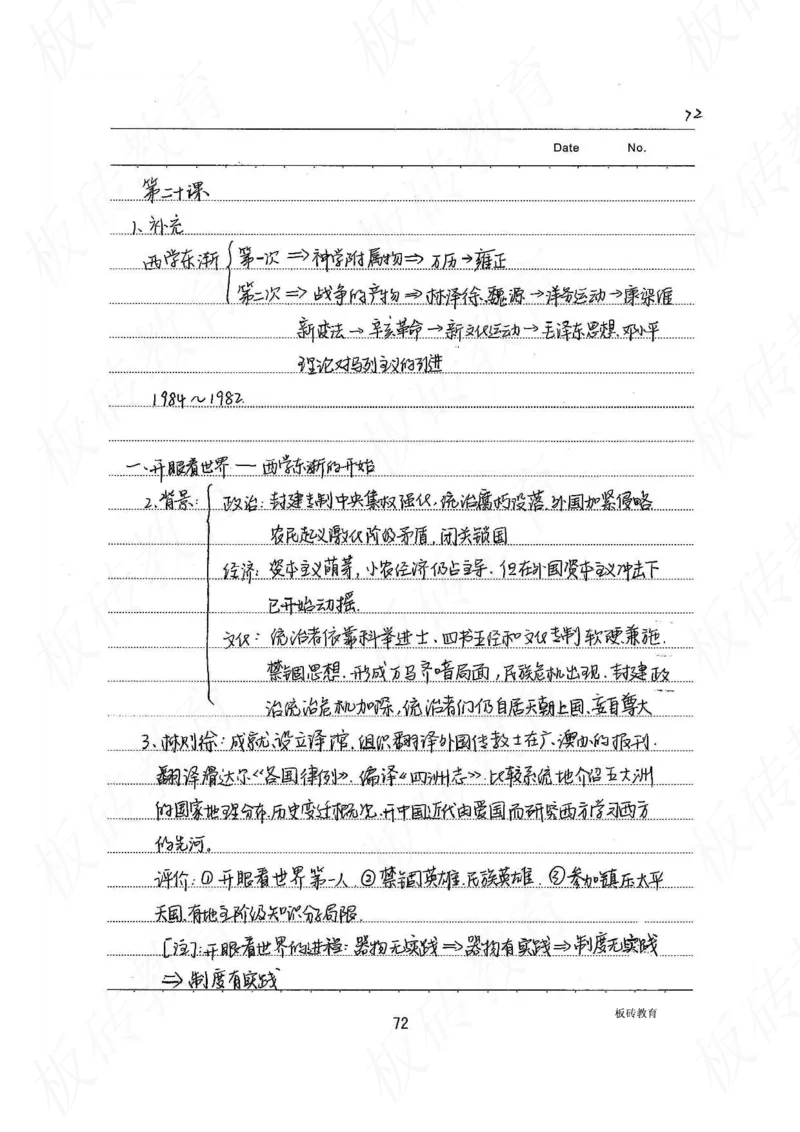 72
Date No.
第二十课
1、补充
西学东渐 第一次 ⇒ 神学附属物 ⇒ 万历→雍正
第二次 ⇒ 战争的产物 ⇒ 林泽徐、魏源→洋务运动→康梁维
新变法→辛亥革命→新文化运动→毛泽东思想、邓小平
理论对马列主义的引进
1984～1982.
一、开眼看世界——西学东渐的开始
2、背景: 政治: 封建专制中央集权强化,统治腐朽没落,外国加紧侵略
农民起义激化阶级矛盾,闭关锁国
经济: 资本主义萌芽,小农经济仍占主导、但在外国资本主义冲击下
已开始动摇.
文化: 统治者依靠科举进士、四书五经和文化专制软硬兼施.
禁锢思想.形成万马齐喑局面,民族危机出现.封建政
治统治危机加深,统治者们仍自居天朝上国、妄自尊大
3、林则徐:成就:设立译馆,组织翻译外国传教士在广、澳办的报刊.
翻译滑达尔《各国律例》.编译《四洲志》.比较系统地介绍五大洲
的国家地理分布、历史变迁概况.开中国近代由爱国而研究西方学习西方
的先河。
评价:①开眼看世界第一人.②禁锢英雄、民族英雄.③参加镇压太平
天国、有地主阶级知识分子局限.
[注]:开眼看世界的进程:器物无实践⇒器物有实践⇒制度无实践
⇒制度有实践
72
板砖教育
板砖教育